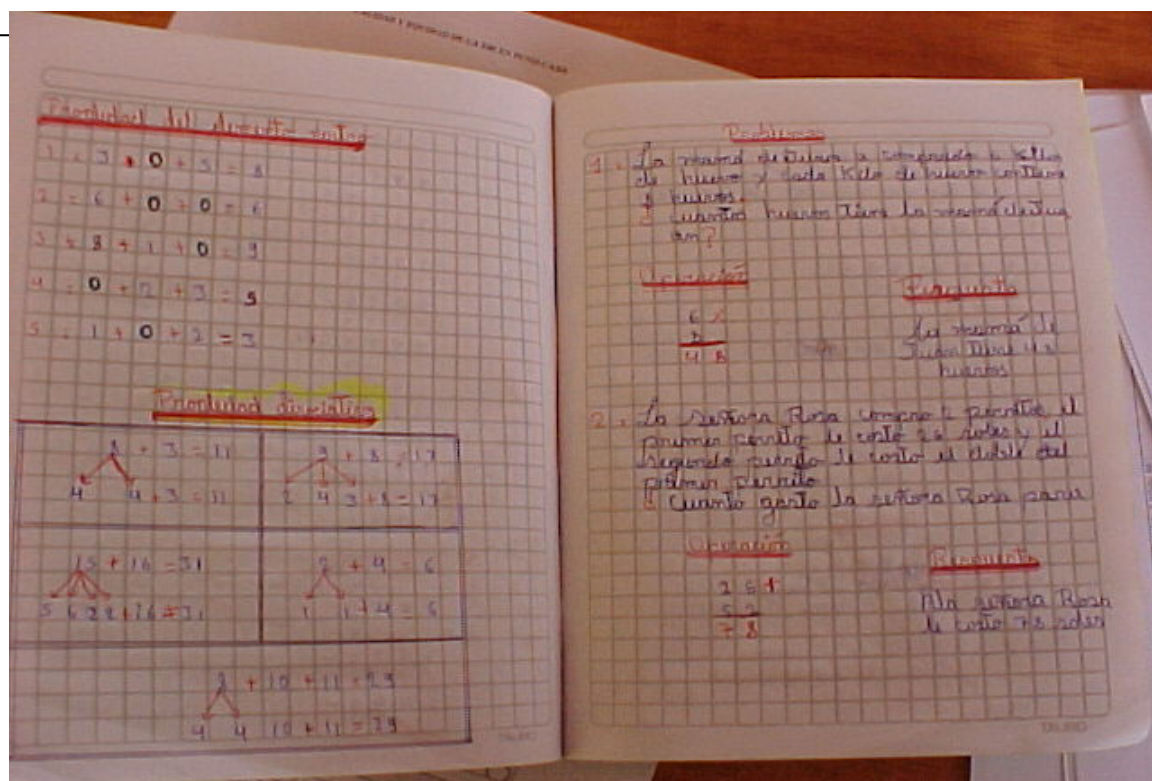 Propiedad del elemento neutro
1 = 5 + 0 + 3 = 8
2 = 6 + 0 + 0 = 6
3 = 8 + 1 + 0 = 9
4 = 0 + 2 + 3 = 5
5 = 1 + 0 + 2 = 3
Propiedad disociativa
8 + 3 = 11
4 4 + 3 = 11
9 + 8 = 17
2 4 3 + 8 = 17
15 + 16 = 31
5 6 2 2 + 16 = 31
2 + 4 = 6
1 1 + 4 = 6
8 + 10 + 11 = 29
4 4 10 + 11 = 29
Problemas
1 = La mamá de Juan a comprado 6 kilos
de huevo y cada kilo de huevo contiene
8 huevos.
¿ Cuantos huevos Tiene la mamá de Jua
an?
Operación
6 x
8
4 8
La mamá de
Juan Tiene 48
huevos
2 = La señora Rosa compro 2 perritos el
primer perrito le costo 26 soles y el
segundo perrito le costo el doble del
primer perrito
¿ Cuanto gasto la señora Rosa
Operación
2 6 +
5 2
7 8
Respuesta
A la señora Rosa
le costo 78 soles